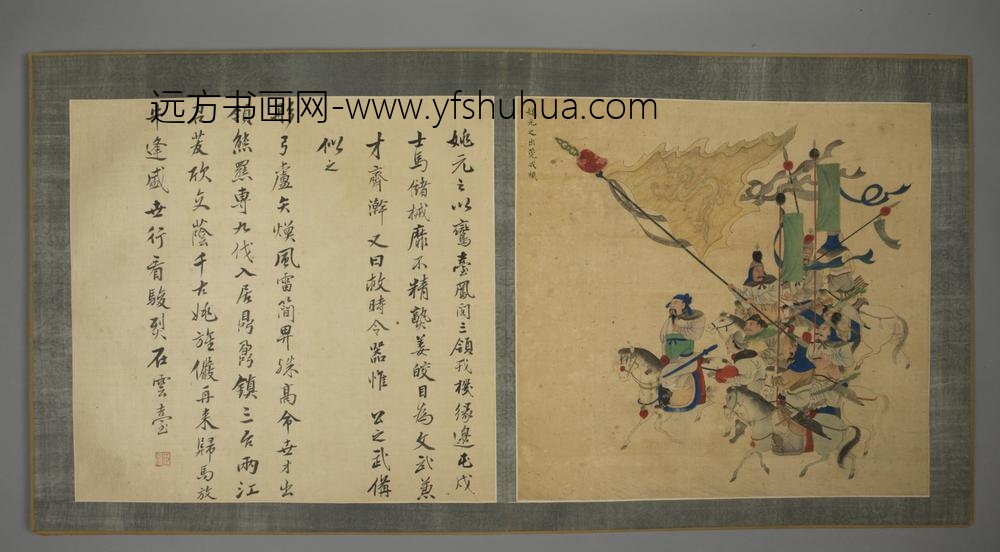 远方书画网-www.yfshuhua.com
姚元之出莞戎機
姚元之以鸞臺鳳閣三領戎機緣邊屯戍
士馬儲械靡不精熟姜皎目為文武兼
才齊澣又曰救時令器惟公之武備
似之
彤弓盧矢煥風雷簡畀殊高命世才出
領熊羆專九伐入居鼎鼐鎮三台兩江
召茇欣交蔭千古姚旌儼再來歸馬放
牛逢盛世行看駿烈石雲臺